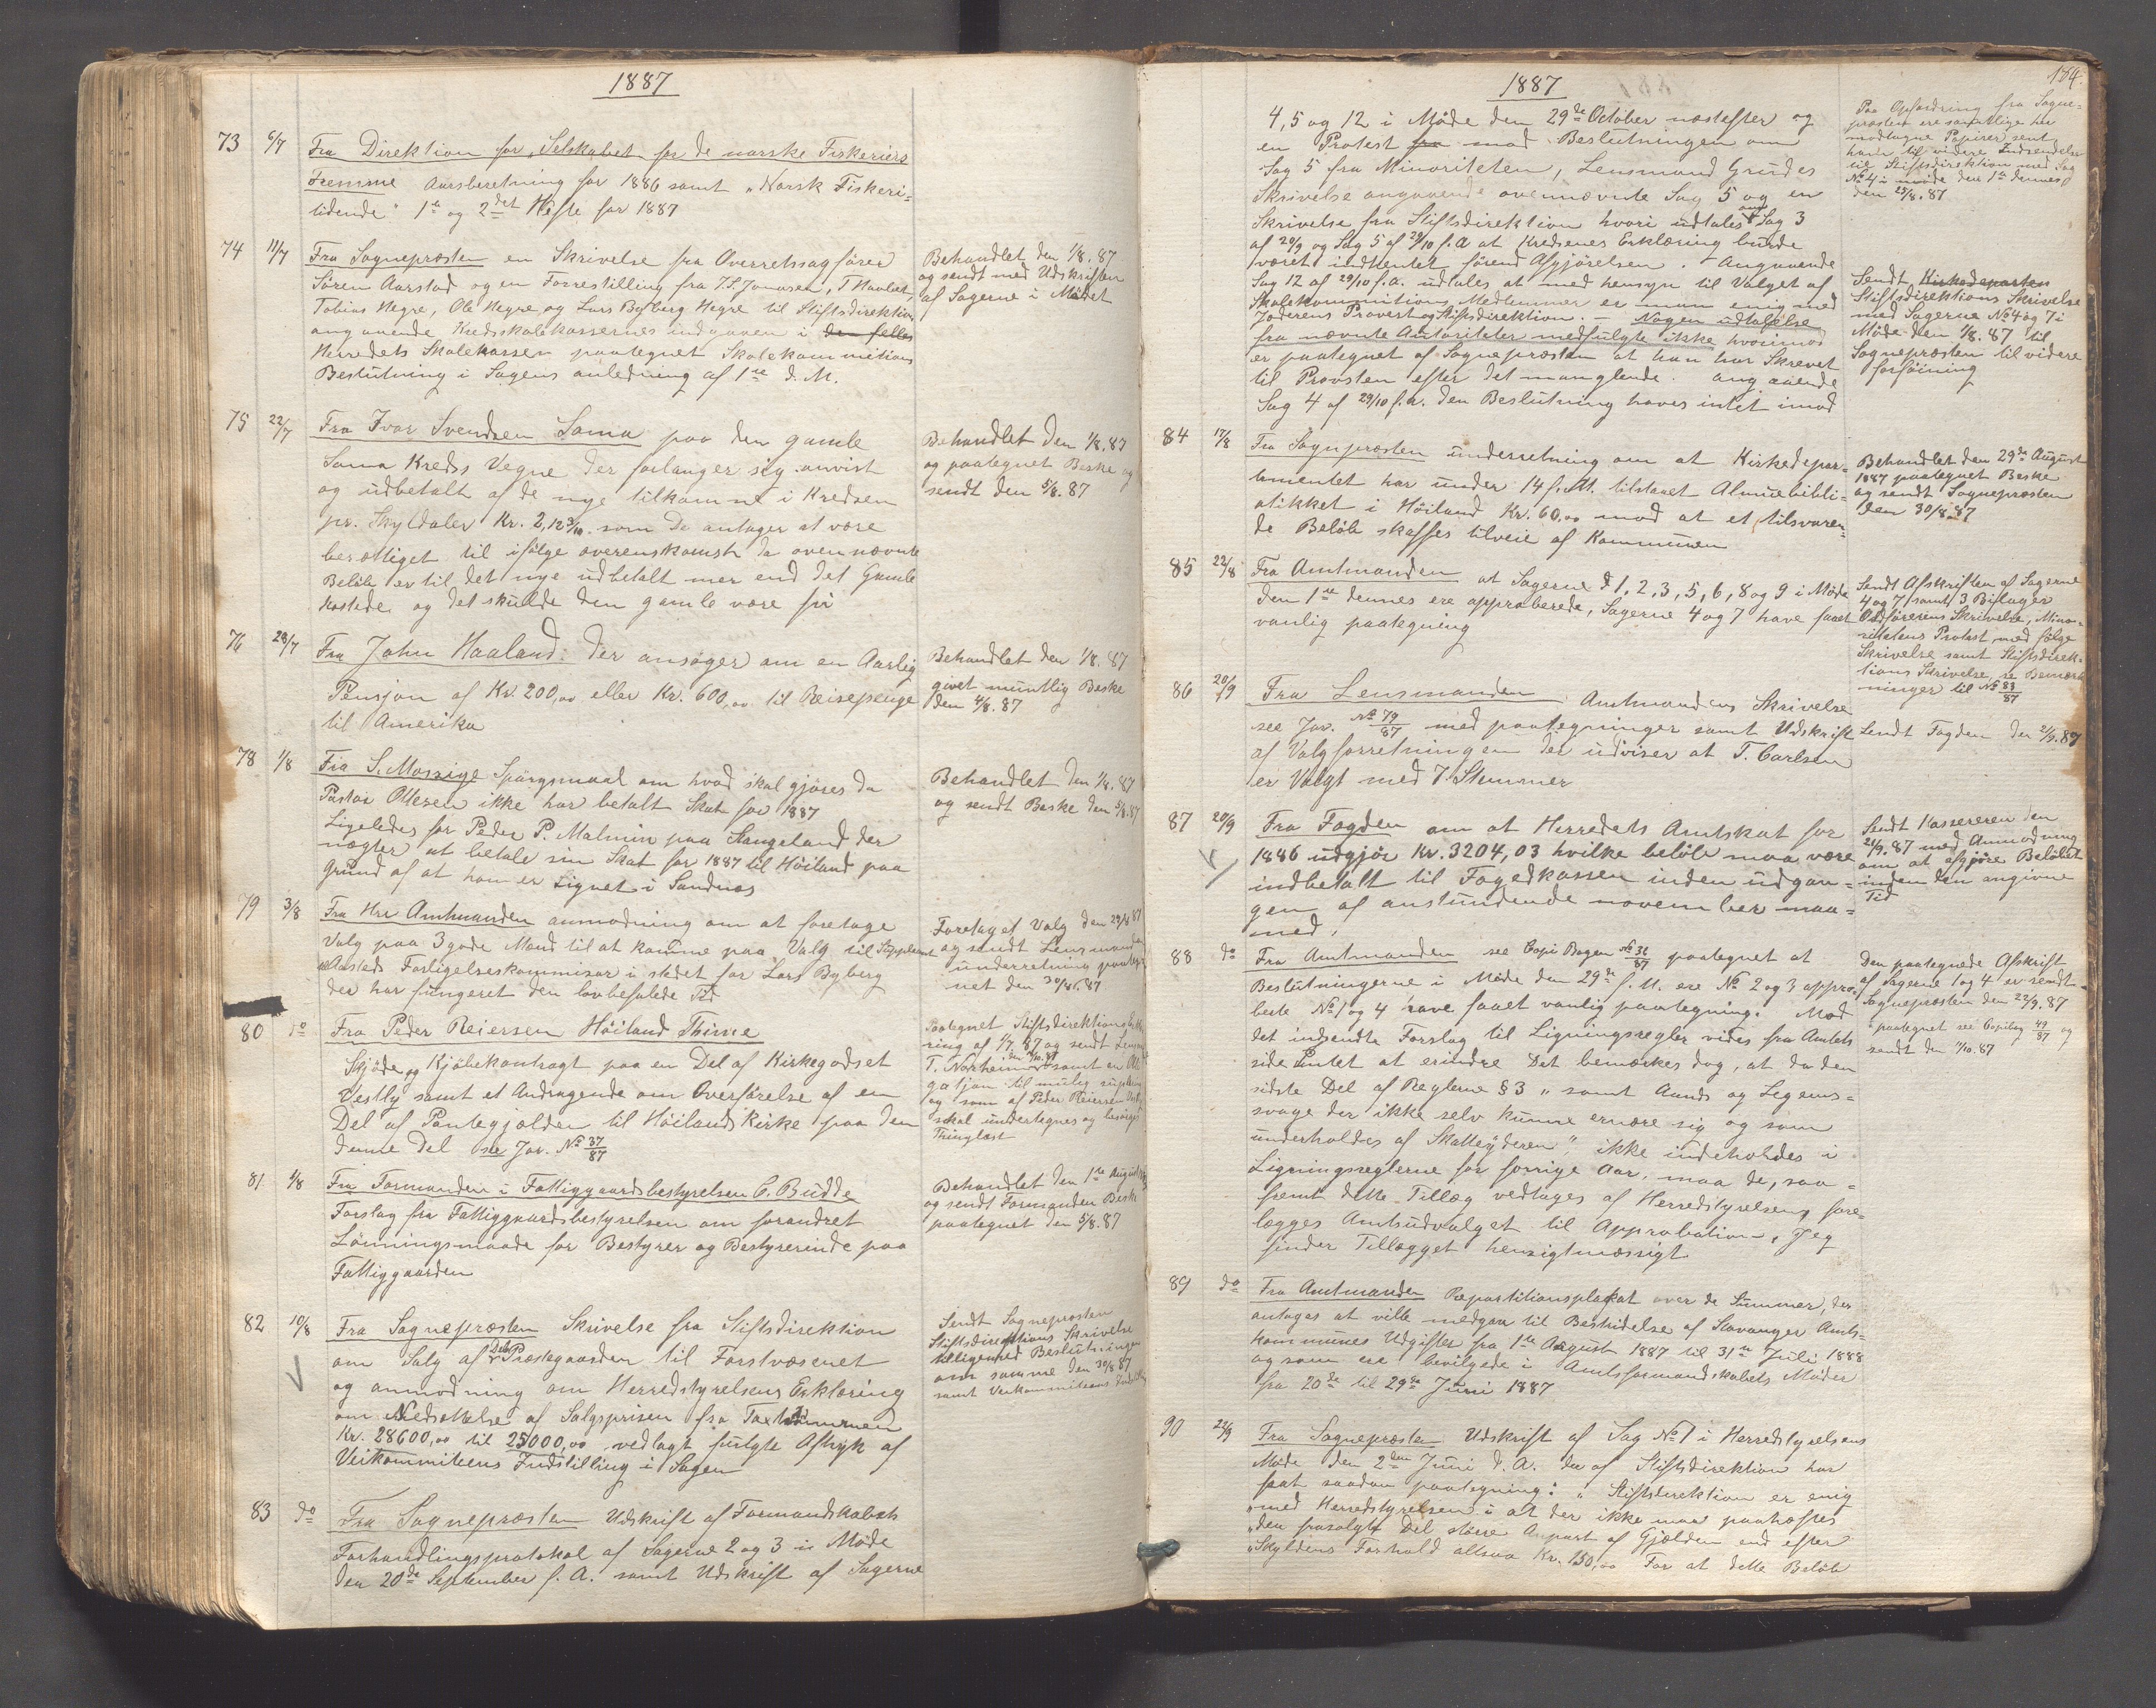 1887
73 6/7 Fra Direktion for „Selskabet for de norske Fiskeriers
Fremme Aarsberetning for 1886 samt „Norsk Fiskeri-
tidende“ 1ste og 2det Hefte for 1887
74 11/7 Fra Sognepræsten en Skrivelse fra Overretssagfører
Sören Aarstad og en Forrestilling fra
Tobias Hegre, Ole Hegre og Lars Byberg Hegre til Stiftsdirektion
angaaende Kredsskolekassernes indgaaen i den fælles
Herredets Skolekassen paategnet Skolekommitions
Beslutning i Sagens anledning af 1ste d. M.
Behandlet den 1/8. 87
og sendt med Udskriften
af Sagerne i Mødet
75 22/7 Fra Ivar Svendsen Soma paa den gamle
Soma Kreds Vegne der forlanger sig anvist
og udbetalt af de nye tilkomne i Kredsen
pr. Skyldaler Kr. 2,12 som De antager at være
berættiget til ifølge overenskomst da ovennævnte
Beløb er til det nye udbetalt mer end det Gamle
kostede og det skulde den gamle være fri
Behandlet den 1/8. 87
og paategnet Beske og
sendt den 5/8. 87
76 28/7 Fra John Haaland: der ansøger om en Aarlig
Pensjon af Kr. 200,00 eller Kr. 600,00 til Reisepenge
til Amerika
Behandlet den 1/8. 87
givet muntlig Beske
den 4/8. 87
78 1/8 Fra S. Mossige Spørgsmaal om hvad skal gjøres da
Pastor Ottesen ikke har betalt Skat for 1887
Ligeledes for Peder P. Malmin paa Stangeland der
nægter at betale sin Skat for 1887 til Höiland paa
Grund af at ham er Lignet i Sandnæs
Behandlet den 1/8. 87
og sendt Beske den 5/8.87
79 3/8 Fra Hre Amtmanden anmodning om at foretage
Valg paa 3 gode Mænd til at komme paa Valg til Supplement
Aasteds Forligelseskommisær i stedet for Lars Byberg
der har fungeret den lovbefalede Tid
Foretaget Valg den 29/8 87
og sendt Lensmanden
underretning paateg-
net den 30/8. 87
80 do Fra Peder Reiersen Höiland Thime
Skjøde og Kjøbekontragt paa en Del af Kirkegodset
Vestly samt et Andragende om Overførelse af en
Del af Pantegjælden til Höilands Kirke paa den
denne Del see Jor. No 37/87
Paategnet Stiftsdirektions
ring af 1/7. 87 og sendt
T. Norheim samt en
gatjon til mulig
og som af Peder Reiersen
skal undertegnes og besørges
Thinglæst
81 4/8 Fra Formanden i Fattiggaardsbestyrelsen C. Budde
Forslag fra Fattiggaardsbestyrelsen om forandret
Lønningsmaade for Bestyrer og Bestyrerinde paa
Fattiggaarden
Behandlet den 1ste August
og sendt Formanden Beske
paategnet den 5/8. 87
82 10/8 Fra Sognepræsten Skrivelse fra Stiftsdirektion
om Salg af Præstegaarden til Forstvæsenet
og anmodning om Herredstyrelsens Erklæring
om Nedsættelse af Salgsprisen fra Taxtsummen
Kr. 28600,00 til 25000,00, vedlagt fulgte Aftryk af
Veikommiteens Indstilling i Sagen
Sendt Sognepræsten
Stiftsdirektions Skrivelse
tilligemed Beslutningen
om samme den 30/8 87
samt Veikommiteens
83 do Fra Sognepræsten Udskrift af Formandskabets
Forhandlingsprotokol af Sagerne 2 og 3 i Møde
den 20de September f. A. samt Udskrift af Sagerne
1887
164.
4, 5 og 12 i Møde den 29de October næstefter og
en Protest fra mod Beslutningen om
Sag 5 fra Minoriteten, Lensmand Grudes
Skrivelse angaaende ovennævnte Sag 5 og en
Skrivelse fra Stiftsdirektion hvori udtales om Sag 3
af 20/9 og Sag 5 af 29/10 f. A at Kredsenes Erklæring burde
været indhentet førend Afgjørelsen. Angaaende
Sag 12 af 29/10 f. a. udtales at med hensyn til Valget af
Skolekommitions Medlemmer er man enig med
Jæderens Provst og Stiftsdirektion. — Nogen udtalelse
fra nævnte Autoriteter medfulgte ikke hvorimod
er paategnet af Sognepræsten at han har Skrevet
til Provsten efter det manglende. angaaende
Sag 4 af 29/10 f. A. den Beslutning haves intet imod
Paa Opfordring fra Sogne-
præsten ere samtlige her
modtagne Papirer sent
ham til videre Indsendelse
til Stiftsdirektion med Sag
No 4 i møde den 1ste dennes
den 23/8. 87
Sendt Kirkedeparten
Stiftsdirektions Skrivelse
med Sagerne No 4 og 7 i
Møde den 1/8. 87 til
Sognepræsten til videre
forføining
84 17/8 Fra Sognpræsten underretning om at Kirkedepar-
tementet har under 14 f. M. tilstaaet Almuebibli-
otikket i Höiland Kr. 60,00 mod at et tilsvaren-
de Beløb skaffes tilveie af Kommunen
Behandlet den 29de August
1887 paategnet Beske
og sendt Sognepræsten
den 30/8. 87
85 22/8 Fra Amtmanden at Sagerne 1, 2, 3, 5, 6, 8 og 9 i Møde
den 1ste dennes ere approberede, Sagerne 4 og 7 have faaet
vanlig paategning
Sendt Afskriften af Sagerne
4 og 7 samt 3 Bilager
Ordførerens Skrivelse, Mino-
ritetens Protest med følge
Skrivelse samt Stiftsdirek-
tions Skrivelse, se Bemærk
ninger til No 83/87
86 20/9 Fra Lensmanden Amtmandens Skrivelse
see Jor. No 79/87 med paategninger samt Udskrift
af Valgforretningen der udviser at T. Carlsen
er Valgt med 7 Stemmer
Sendt Fogden den 21/9. 87
87 20/9 Fra Fogden om at Herredets Amtskat for
1886 udgjör Kr. 3204,03 hvilke beløb maa være
indbetalt til Fogedkassen inden udgan-
gen af anstundende november maa-
ned.
Sendt Kassereren den
21/9. 87 med Anmodning
om at afgjøre Beløbet
inden den angivne
Tid
88 do Fra Amtmanden see Copi Bogen No 32/87 paategnet at
Beslutningerne i Møde den 29de f. M. ere No 2 og 3 appro-
berte No 1 og 4 have faaet vanlig paategning. Mod
det indsendte Forslag til Ligningsregler vides fra Amtets
side Intet at erindre Det bemærkes dog, at da den
sidste Del af Reglerne § 3 „ samt Aands og Legems-
svage der ikke selv kunne ernære sig og som
underholdes af Skatteyderen“ ikke indeholdes i
Ligningsreglerne for forrige Aar, maa de, saa-
fremt dette Tillæg vedtages af Herredstyrelsen, fore-
lægges Amtsudvalget til Approbation, Jeg
finder Tillægget hensigtmæssigt
Den paategnede Afskrift
af Sagerne 1 og 4 er sendt
Sognepræsten den 22/9. 87
paategnet see Copibog 49/87 og
sendt den 1/10. 87
89 do Fra Amtmanden Repartitionsplakat over de Summer, der
antages at ville medgaa til Bestridelse af Stavanger Amts-
kommunes Udgifter fra 1ste August 1887 til 31te Juli 1888
og som ere bevilgede i Amtsformandskabets Møder
fra 20de til 29de Juni 1887
90 22/9 Fra Sognepræsten Udskrift af Sag No 1 i Herredstyrelsens
Møde den 2den Juni d. A. der af Stiftsdirektion har
faat saadan paategning: „ Stiftsdirektion er enig
„med Herredstyrelsen i at der ikke maa paahæftes
„den frasolgte Del større Anpart af Gjælden end efter
„Skyldens Forhold altsaa Kr. 150,00 For at dette Beløb